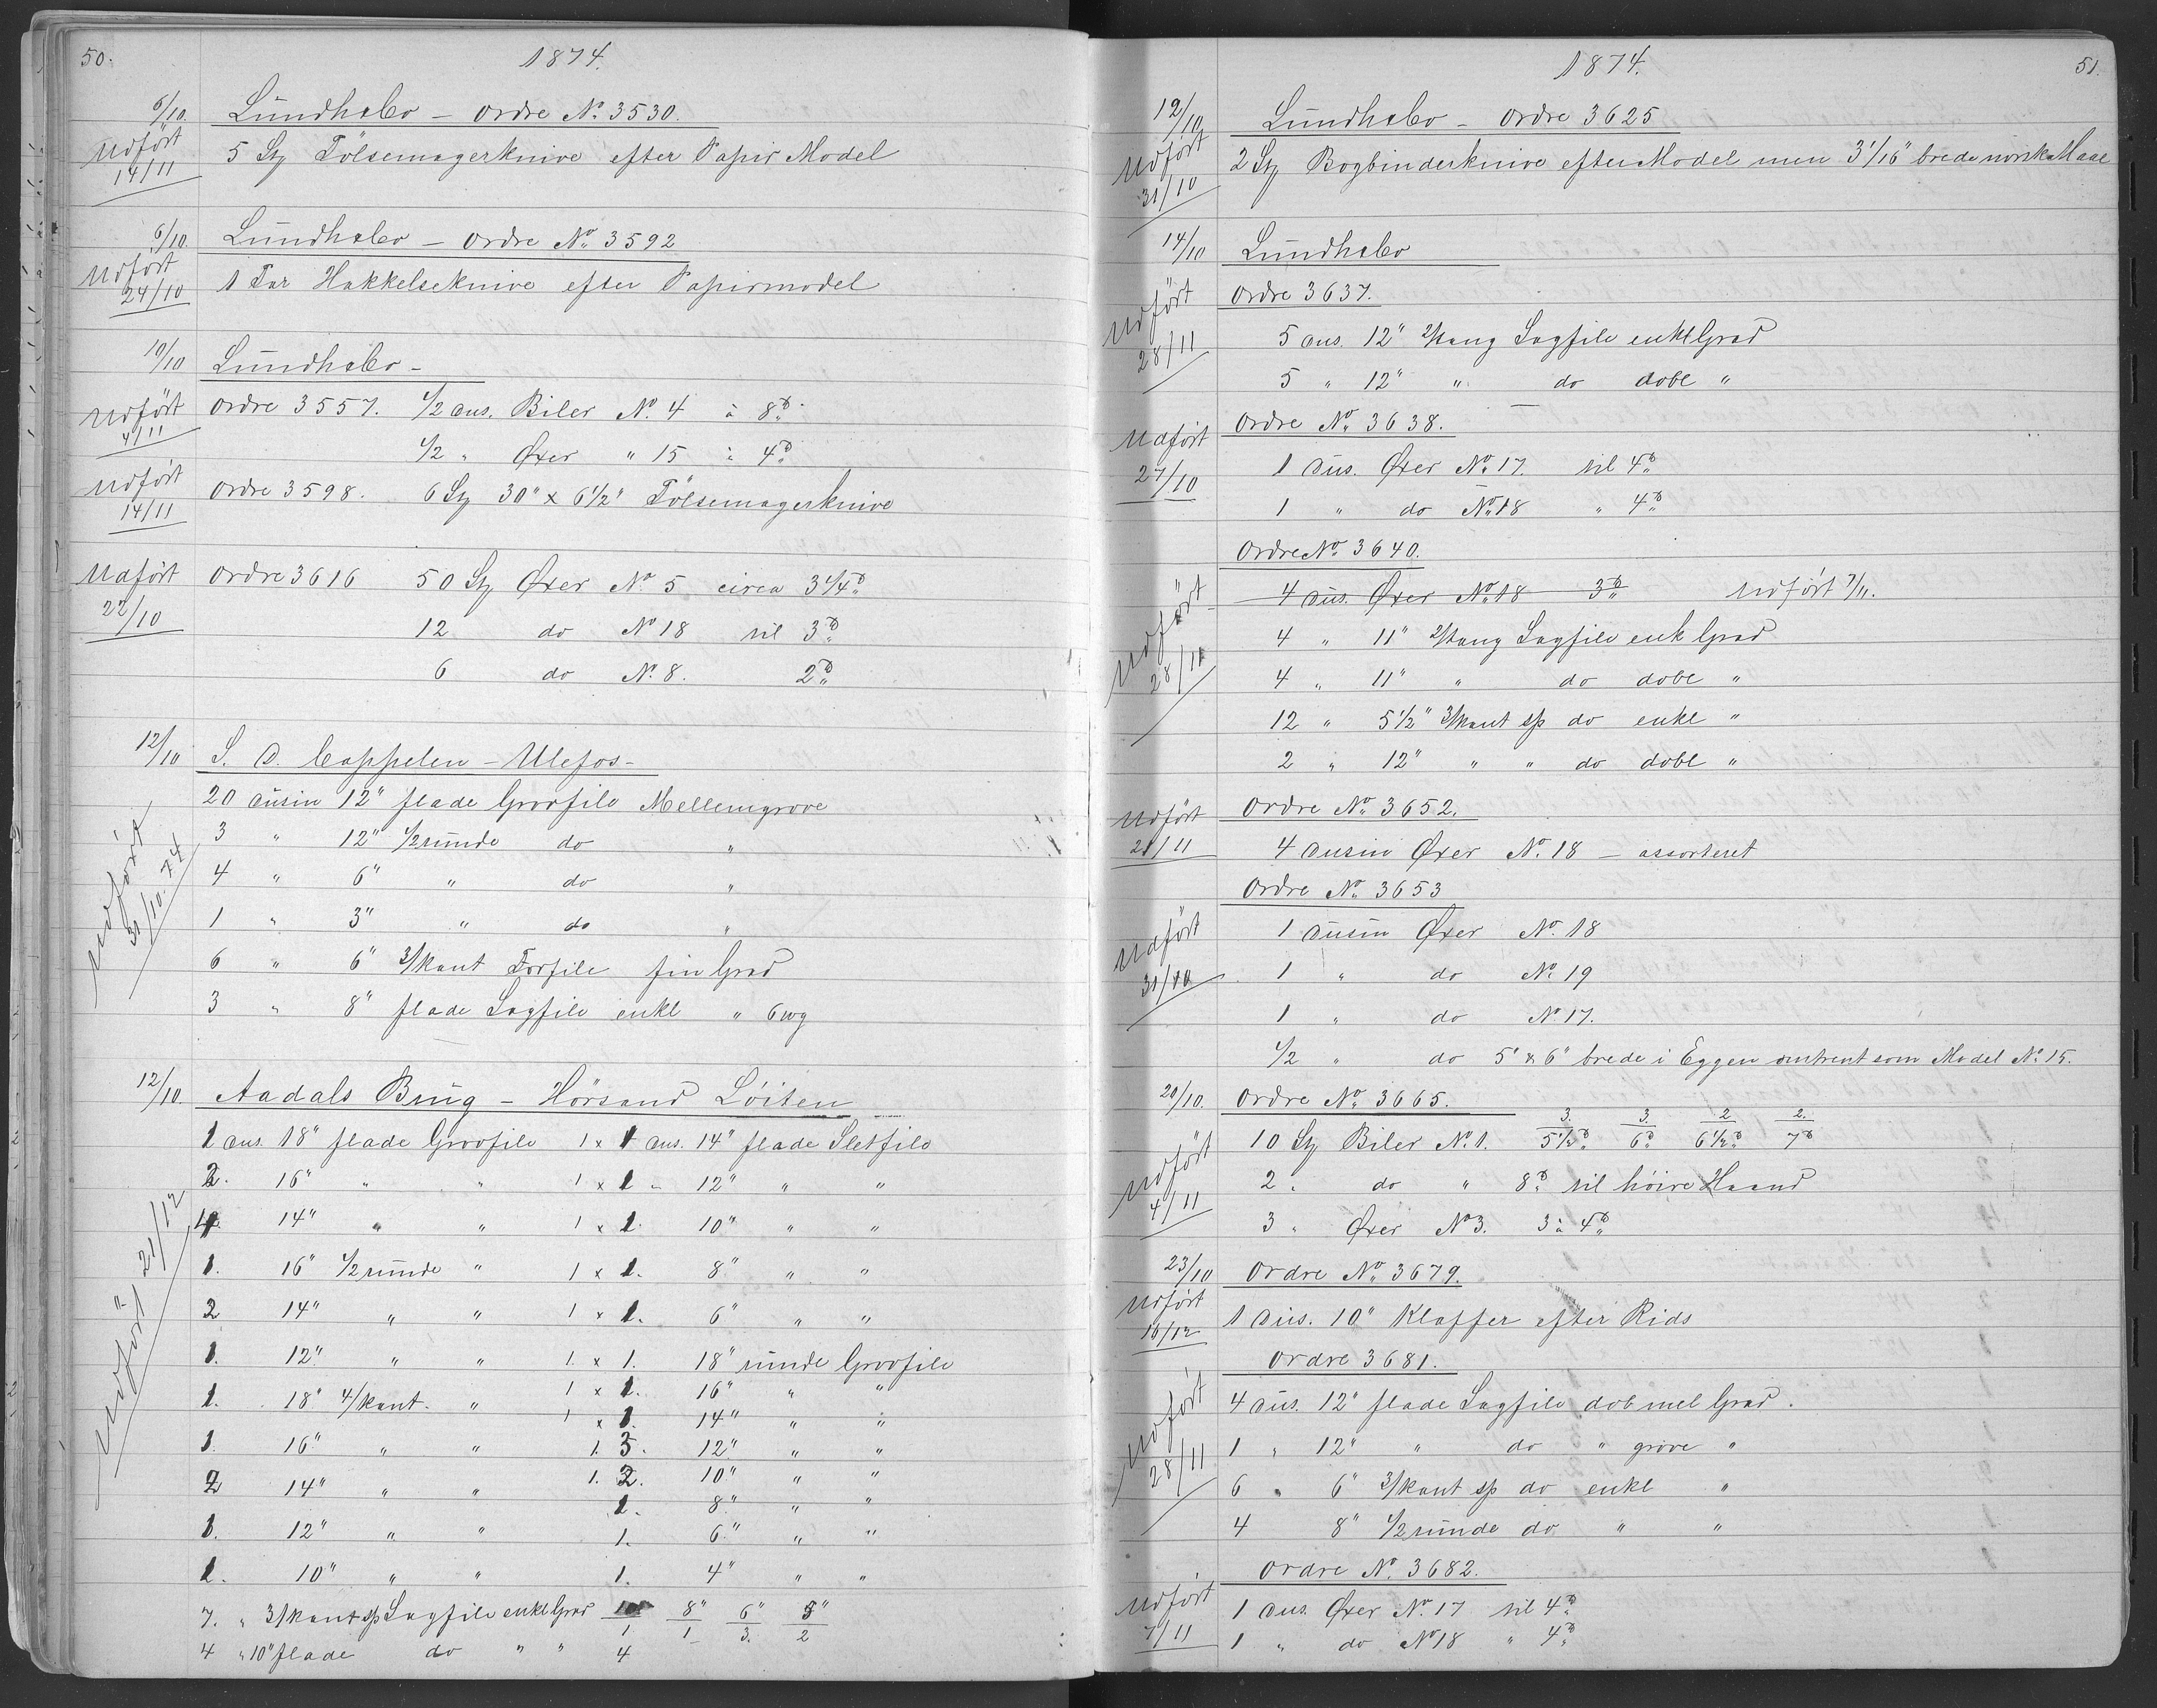 50.
1874.
6/10. Lundhebo – Ordre No. 3530.
Udført 14/11
5 Stz Tölsemagerknive efter Papir Model
6/10. Lundhebo – Ordre No. 3592
Udført 24/10
1 Par Hakkelseknive efter Papirmodel
10/10 Lundhebo –
Udført 4/11
Ordre 3557. 1/2 dus. Biler No. 4 à 8 ℔
1/2 " Øxer " 15 à 4 ℔
Udført 14/11
Ordre 3598. 6 Stz 30" x 6 1/2" Tölsemagerknive
Udført 22/10
Ordre 3616 50 Stz Øxer No. 5 circa 3 1/4 ℔
12 do No 18 til 3 ℔
6 do No. 8. 2 ℔
12/10 S. D. Cappelen – Ulefos –
Udført 31/10. 74
20 dusin 12" flade Grovfile Mellemgrove
3 " 12" 1/2 runde do "
4 " 6" " do "
1 " 3" " do "
6 " 6" 3/kant Torfile fin Grad
3 " 8" flade Sagfile enkl " 6wg
12/10. Aadals Brug – Hörsand Löiten
Udført 21/12
1 dus. 18" flade Grovfile 1 x 1 dus. 14" flade Sletfile
2. 16" " " 1 x 1 " 12" " "
4. 14" " " 1 x 1. 10" " "
1. 16" 1/2 runde " 1 x 1. 8" " "
2 14" " " 1 x 1. 6" " "
1. 12" " " 1. x 1. 18" runde Grovfile
1. 18" 4/kant. " 1 x 1. 16" " "
1 x 1. 14" " "
1 16" " " 1. 3. 12" " "
2 14" " " 1. 2. 10" " "
1. 8" " "
1. 12" " " 1. 6" " "
1. 10" " " 1. 4" " "
7. " 3/kant sp Sagfile enkl Grad 10/1 8"/1 6"/3. 5"/2
4 " 10" flade do " " 4
51.
1874.
12/10 Lundhebo – Ordre 3625
Udført 31/10
2 Stz Bogbinderknive efter Model men 3 1/16" brede norsk Maal
14/10 Lundhebo
Ordre 3637.
Udført 28/11
5 dus. 12" 2/kang Sagfile enkl Grad
5 " 12" " do dobl "
Ordre No. 3638.
Udført 27/10
1 dus. Øxer No. 17. til 4 ℔
1 " do No. 18 " 4 ℔
Ordre No. 3640.
4 dus. Øxer No. 18 3 ℔ Udført 7/11.
Udført 28/11
4 " 11" 2/kang Sagfile enk Grad
4 " 11" " do dobl "
12 " 5 1/2" 3/kant sp do enkl "
2 " 12" " " do dobl "
Ordre No. 3652.
Udført 21/11
4 dusin Øxer No. 18 – assorteret
Ordre No. 3653
Udført 31/10
1 dusin Øxer No. 18
1 " do No. 19
1 " do No. 17.
1/2 " do 5" x 6" brede i Eggen omtrent som Model No. 15.
20/10. Ordre No. 3665.
Udført 4/11
10 Stz Biler No. 1. 3./5 1/2 ℔ 3./6 ℔ 2/6 1/2 ℔ 2./7 ℔
2 " do " 8 ℔ til höire Haand
3 " Øxer No 3. 3 à 4 ℔
23/10 Ordre No. 3679.
Udført 16/12
1 dus. 10" Klaffer efter Rids
Ordre 3681.
Udført 28/11
4 dus. 12" flade Sagfile dob mel Grad.
1 " 12" " do " grove "
6 " 6" 3/kant sp do enkl "
4 8" 1/2 runde do " "
Ordre No. 3682.
Udført 7/11
1 dus. Øxer No. 17 til 4 ℔
1 " do No 18 " 4 ℔